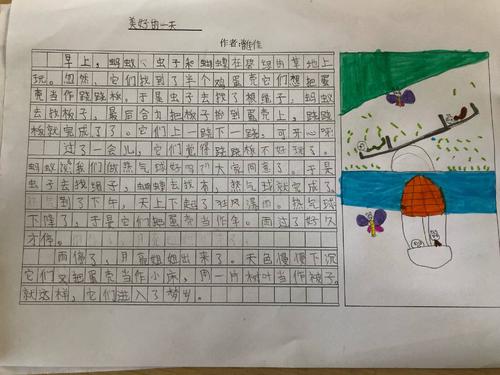 美好的一天
作者:
早上，蚂蚁、虫子和蝴蝶在翠绿的草地上
玩。忽然，它们找到了半个鸡蛋壳它们想把蛋
壳当作跷跷板，于是虫子去找了根绳子，蚂蚁
去找板子，最后合力把板子抬到蛋壳上，跷跷
板就完成了了。它们上一跷下一跷，可开心呀
过了一会儿，它们觉得跷跷板不好玩了。
蚂蚁说我们做热气球好吗大家同意了。于是
虫子去找绳子，蝴蝶去找布，热气球就完成了。
到了下午，天上下起了狂风暴雨。热气球
下降了，于是它们把蛋壳当作舟。雨过了好久
才停。
雨停了，月亮姐姐出来了。天色慢慢下沉
它们又把蛋壳当作小床，用一片树叶当作被子。
就这样，它们进入了梦乡。